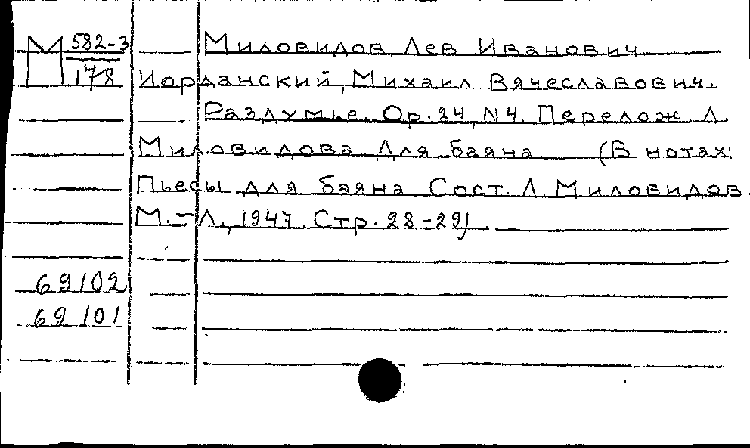 М 582-3
178
Миловидов Лев Иванович
Иорданский, Михаил Вячеславович.
Раздумье. Ор. 24, N4. Перелож Л
Миловидова Для баяна (В нотах:
Пьесы для баяна Сост. Л Миловидов
М.-Л., 1947. Стр. 28-29)
69102
69101